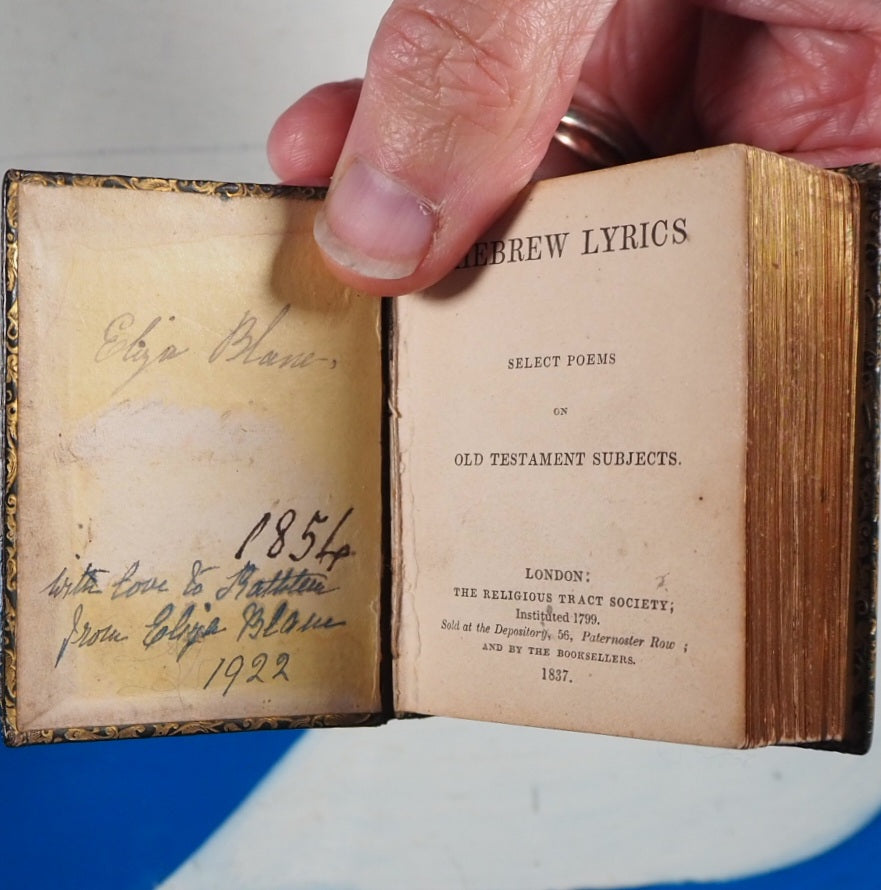 Eliza Blane,
1854
with love to Kathleen
from Eliza Blane
1922
HEBREW LYRICS
SELECT POEMS
ON
OLD TESTAMENT SUBJECTS.
LONDON:
THE RELIGIOUS TRACT SOCIETY;
Instituted 1799.
Sold at the Depository, 56, Paternoster Row ;
AND BY THE BOOKSELLERS.
1837.